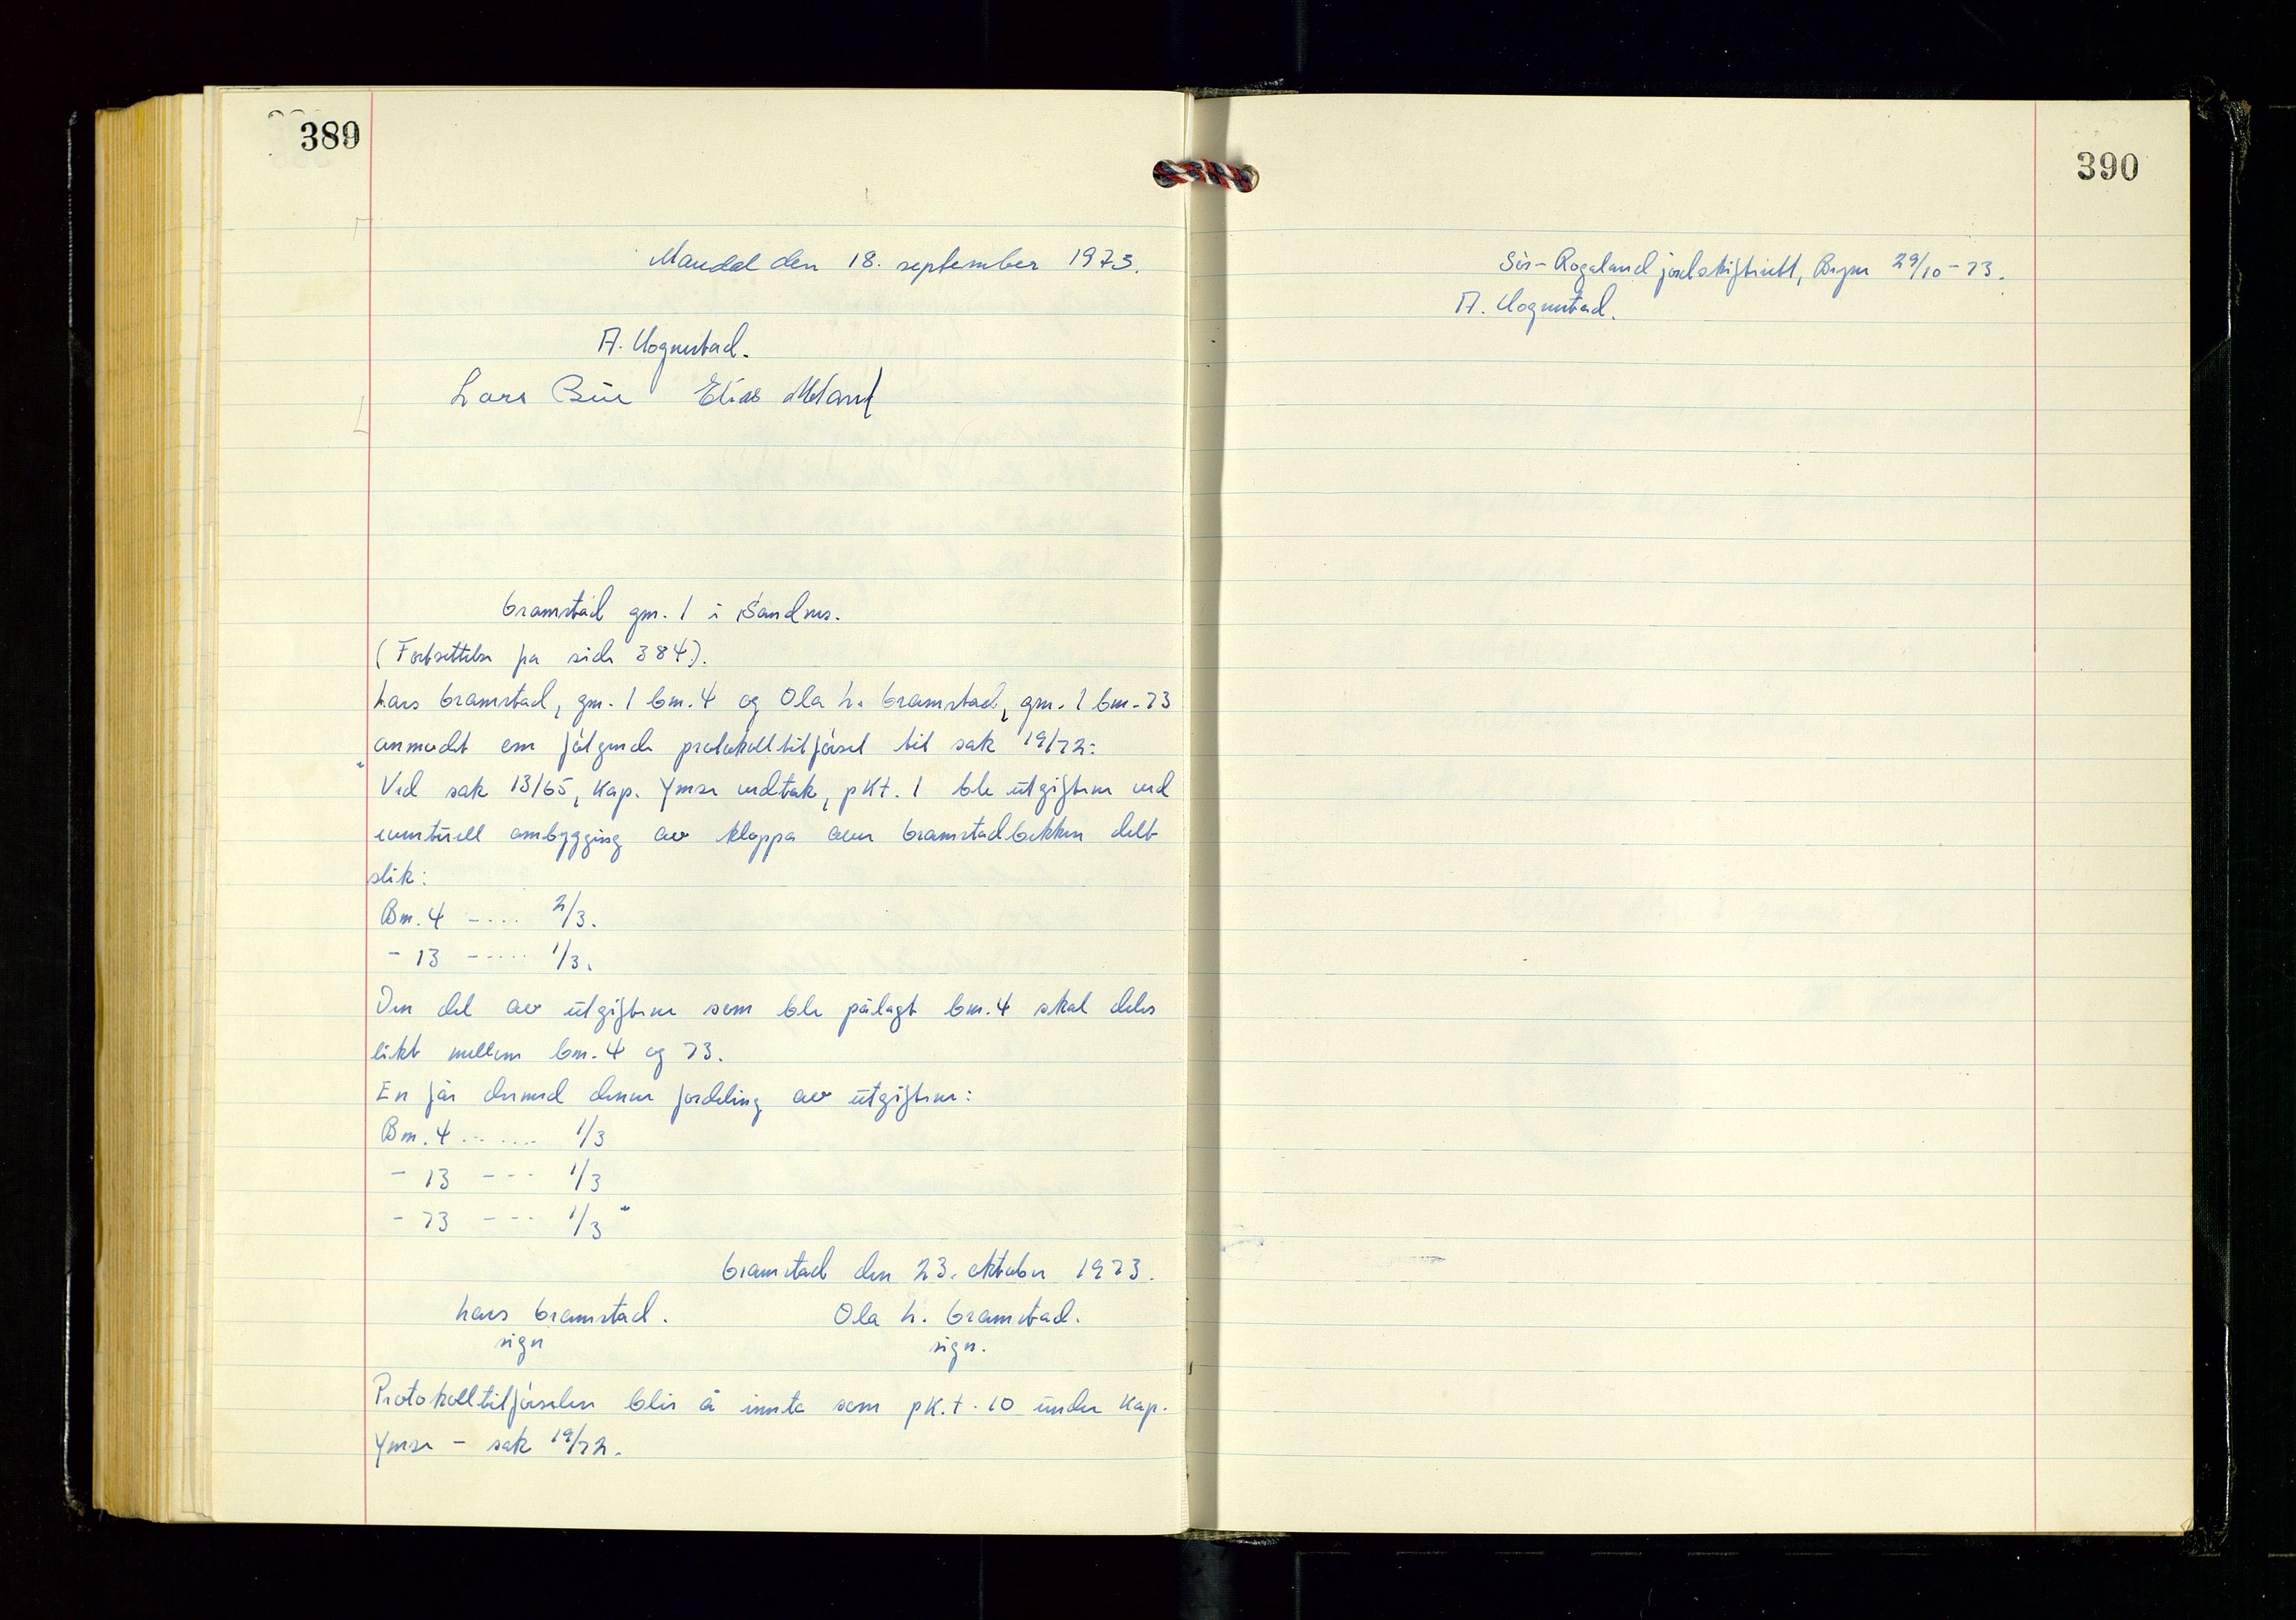 389
Mandal den 18. september 1973.
A. Hognestad.
Lars Bue Elias Meland
Gramstad gnr. 1 i Sandnes.
(Fortsettelse fra side 384).
Lars Gramstad, gnr. 1 bnr. 4 og Ola L. Gramstad, gnr. 1 bnr. 73
anmodet om følgende protokolltilførsel til sak 19/72:
"Ved sak 13/65, Kap. Ymse vedtak, pkt. 1 ble utgiftene ved
eventuell ombygging av kloppa over Gramstadbekken delt
slik:
Bnr. 4 ---- 2/3.
- 13 ----- 1/3.
Den del av utgiftene som ble pålagt bnr. 4 skal deles
likt mellom bnr. 4 og 73.
En får dermed denne fordeling av utgiftene:
Bnr. 4 ...... 1/3
- 13 --- 1/3
- 73 --- 1/3"
Gramstad den 23. oktober 1973.
Lars Gramstad. Ola L. Gramstad.
sign sign.
Protokolltilførselen blir å innta som pk.t. 10 under Kap.
Ymse - sak 19/72.
390
Sør-Rogaland jordskifterett, Bryne 29/10-73.
A. Hognestad.